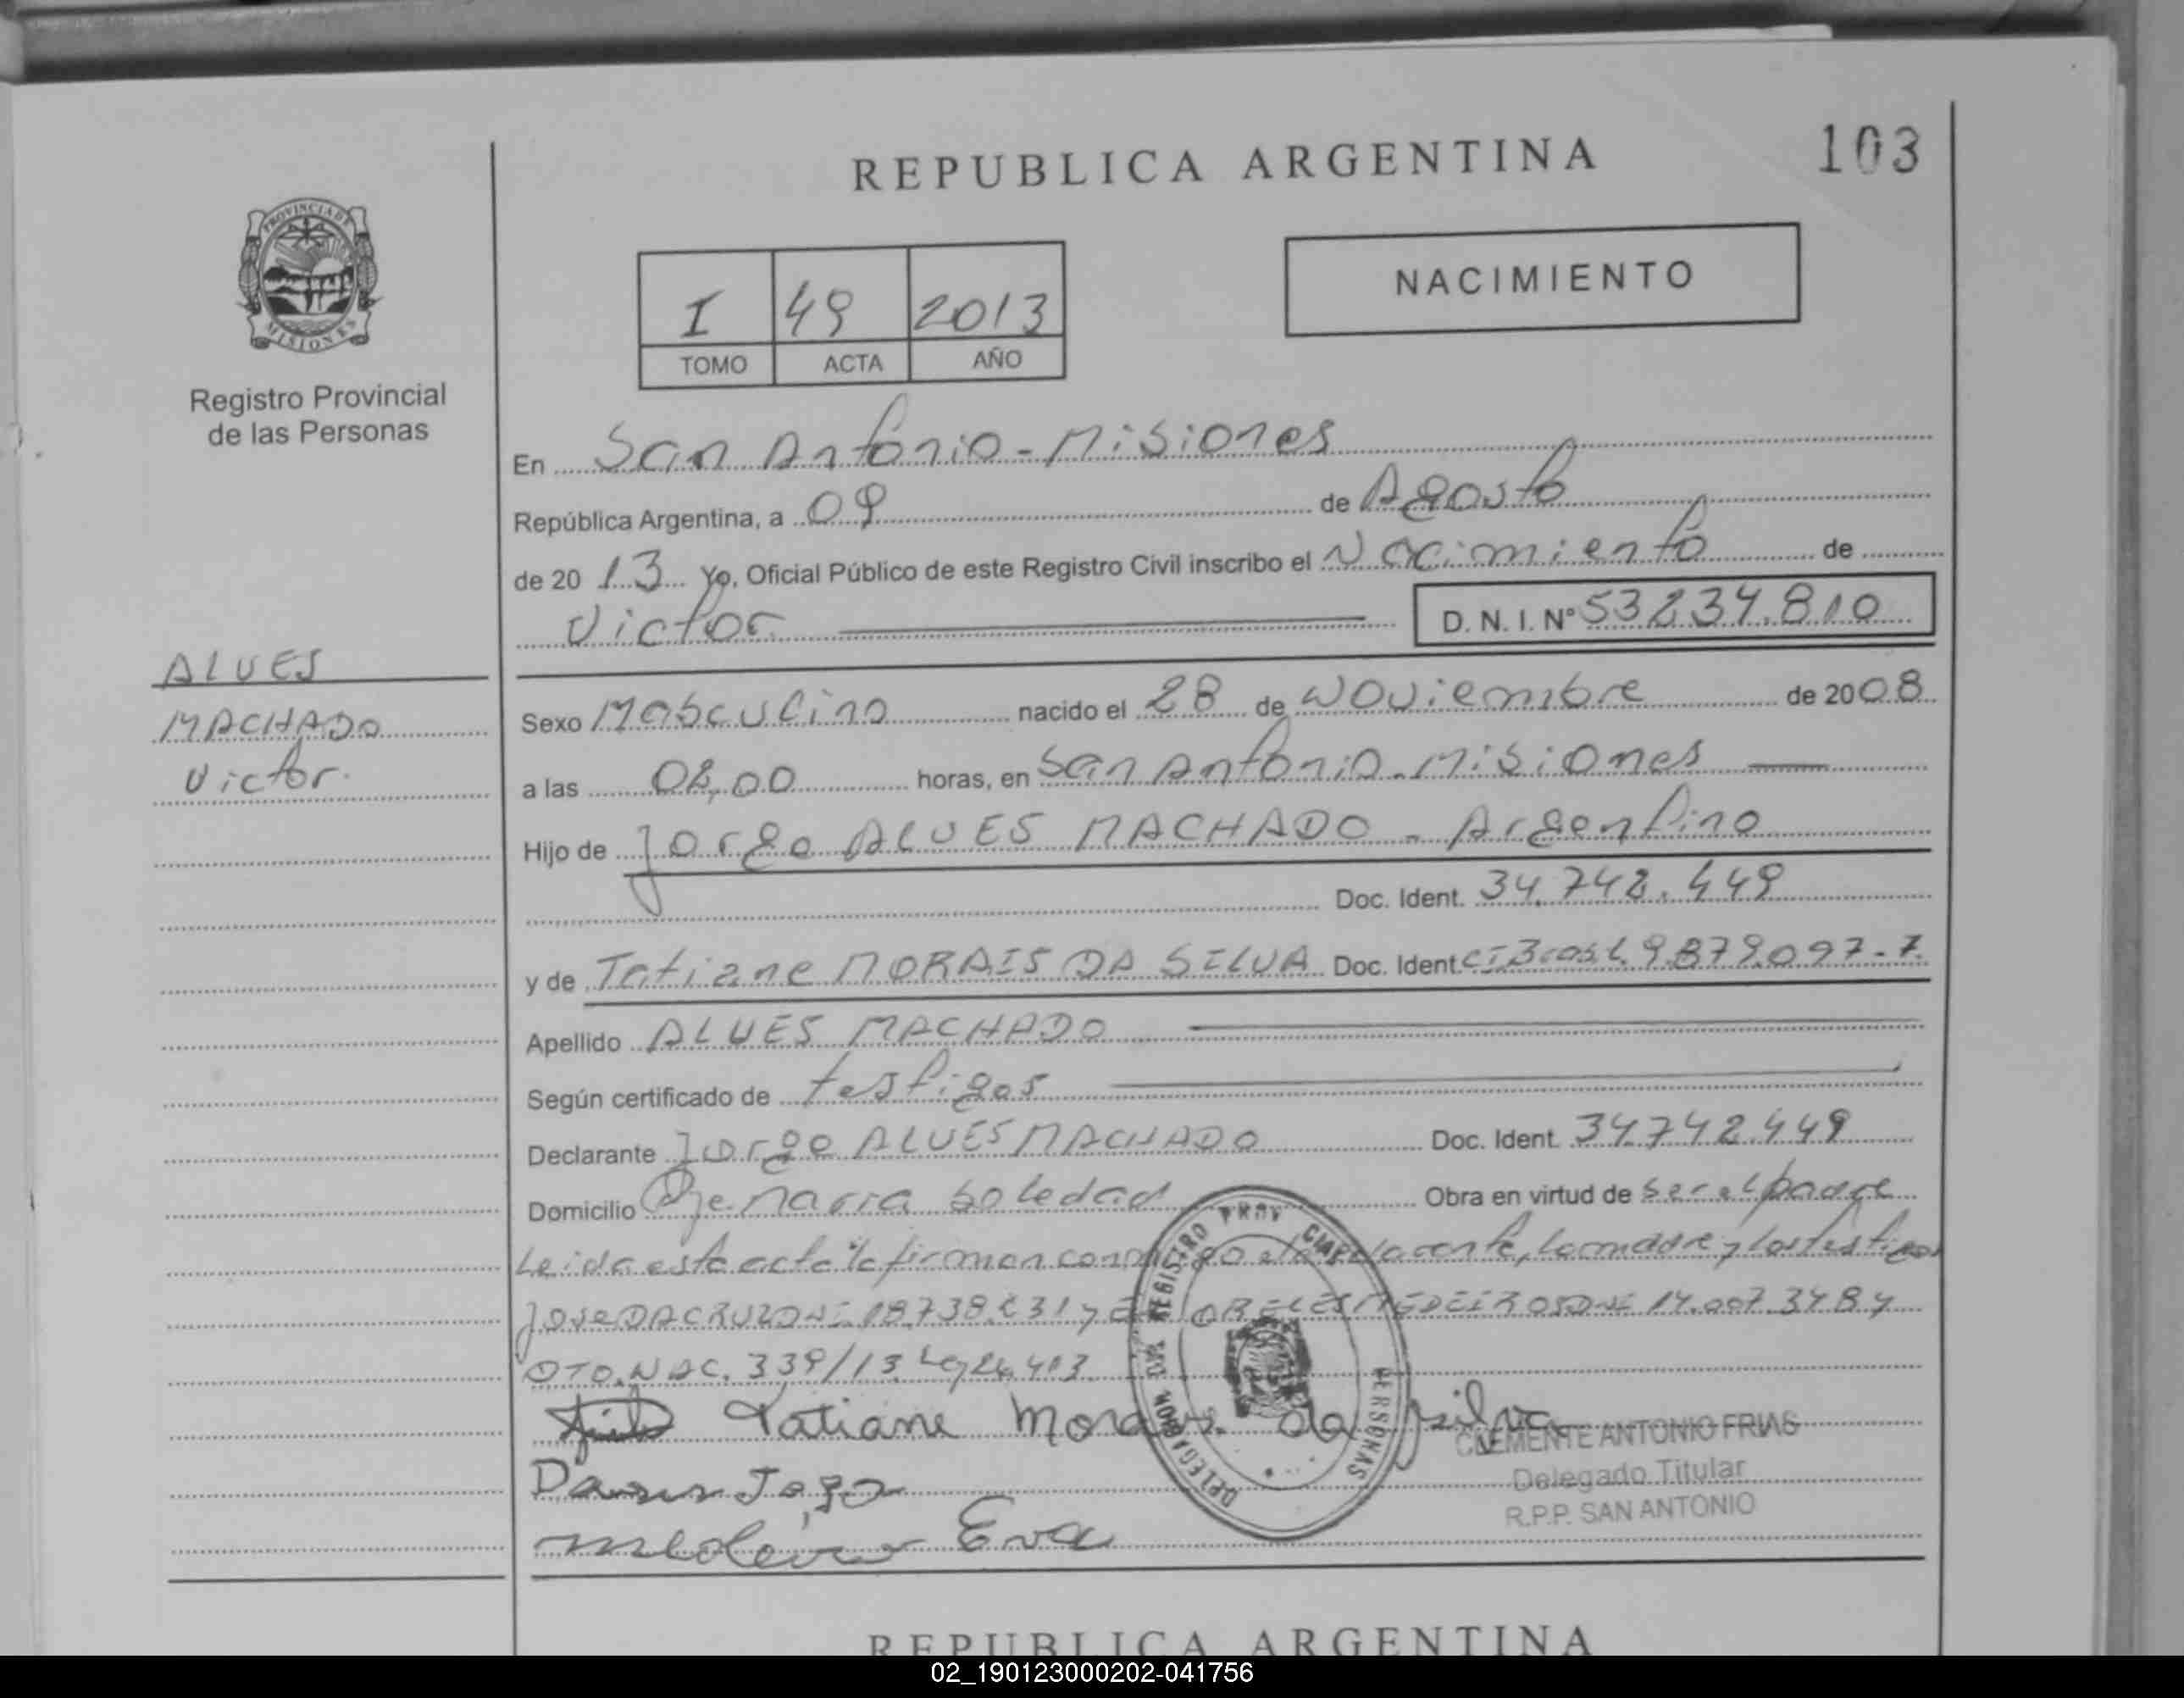 REPUBLICA ARGENTINA
103
PROVINCIA DE
MISIONES
Registro Provincial
de las Personas
I 49 2013
TOMO ACTA AÑO
NACIMIENTO
En San Antonio - Misiones
República Argentina, a 09 de Agosto
de 20 13 Yo, Oficial Público de este Registro Civil inscribo el Nacimiento de
Victor D. N. I. Nº 53234.810
ALVES
MACHADO
Victor.
Sexo Masculino nacido el 28 de Noviembre de 2008
a las 08,00 horas, en San Antonio - Misiones
Hijo de Jorge ALVES MACHADO - Argentino
Doc. Ident. 34.742.449
y de Tatiane MORAIS DA SILVA Doc. Ident CI Brasil 9.879.097-7
Apellido ALVES MACHADO
Según certificado de testigos
Declarante Jorge ALVES MACHADO Doc. Ident. 34742449
Domicilio Pje Maria Soledad Obra en virtud de ser el padre
Leida esta acta la firman conmigo el declarante, la madre y los testigos
Jose DA CRUZ DNI 18.738. y MEDEIROS DNI 14.007.
DTO. NAC. 339/13 Ley 26.413
Tatiane Morais da Silva
Eva
DELEGACION REGISTRO PROV PERSONAS
CLEMENTE ANTONIO FRIAS
Delegado Titular
R.P.P. SAN ANTONIO
REPUBLICA ARGENTINA
02_190123000202-041756